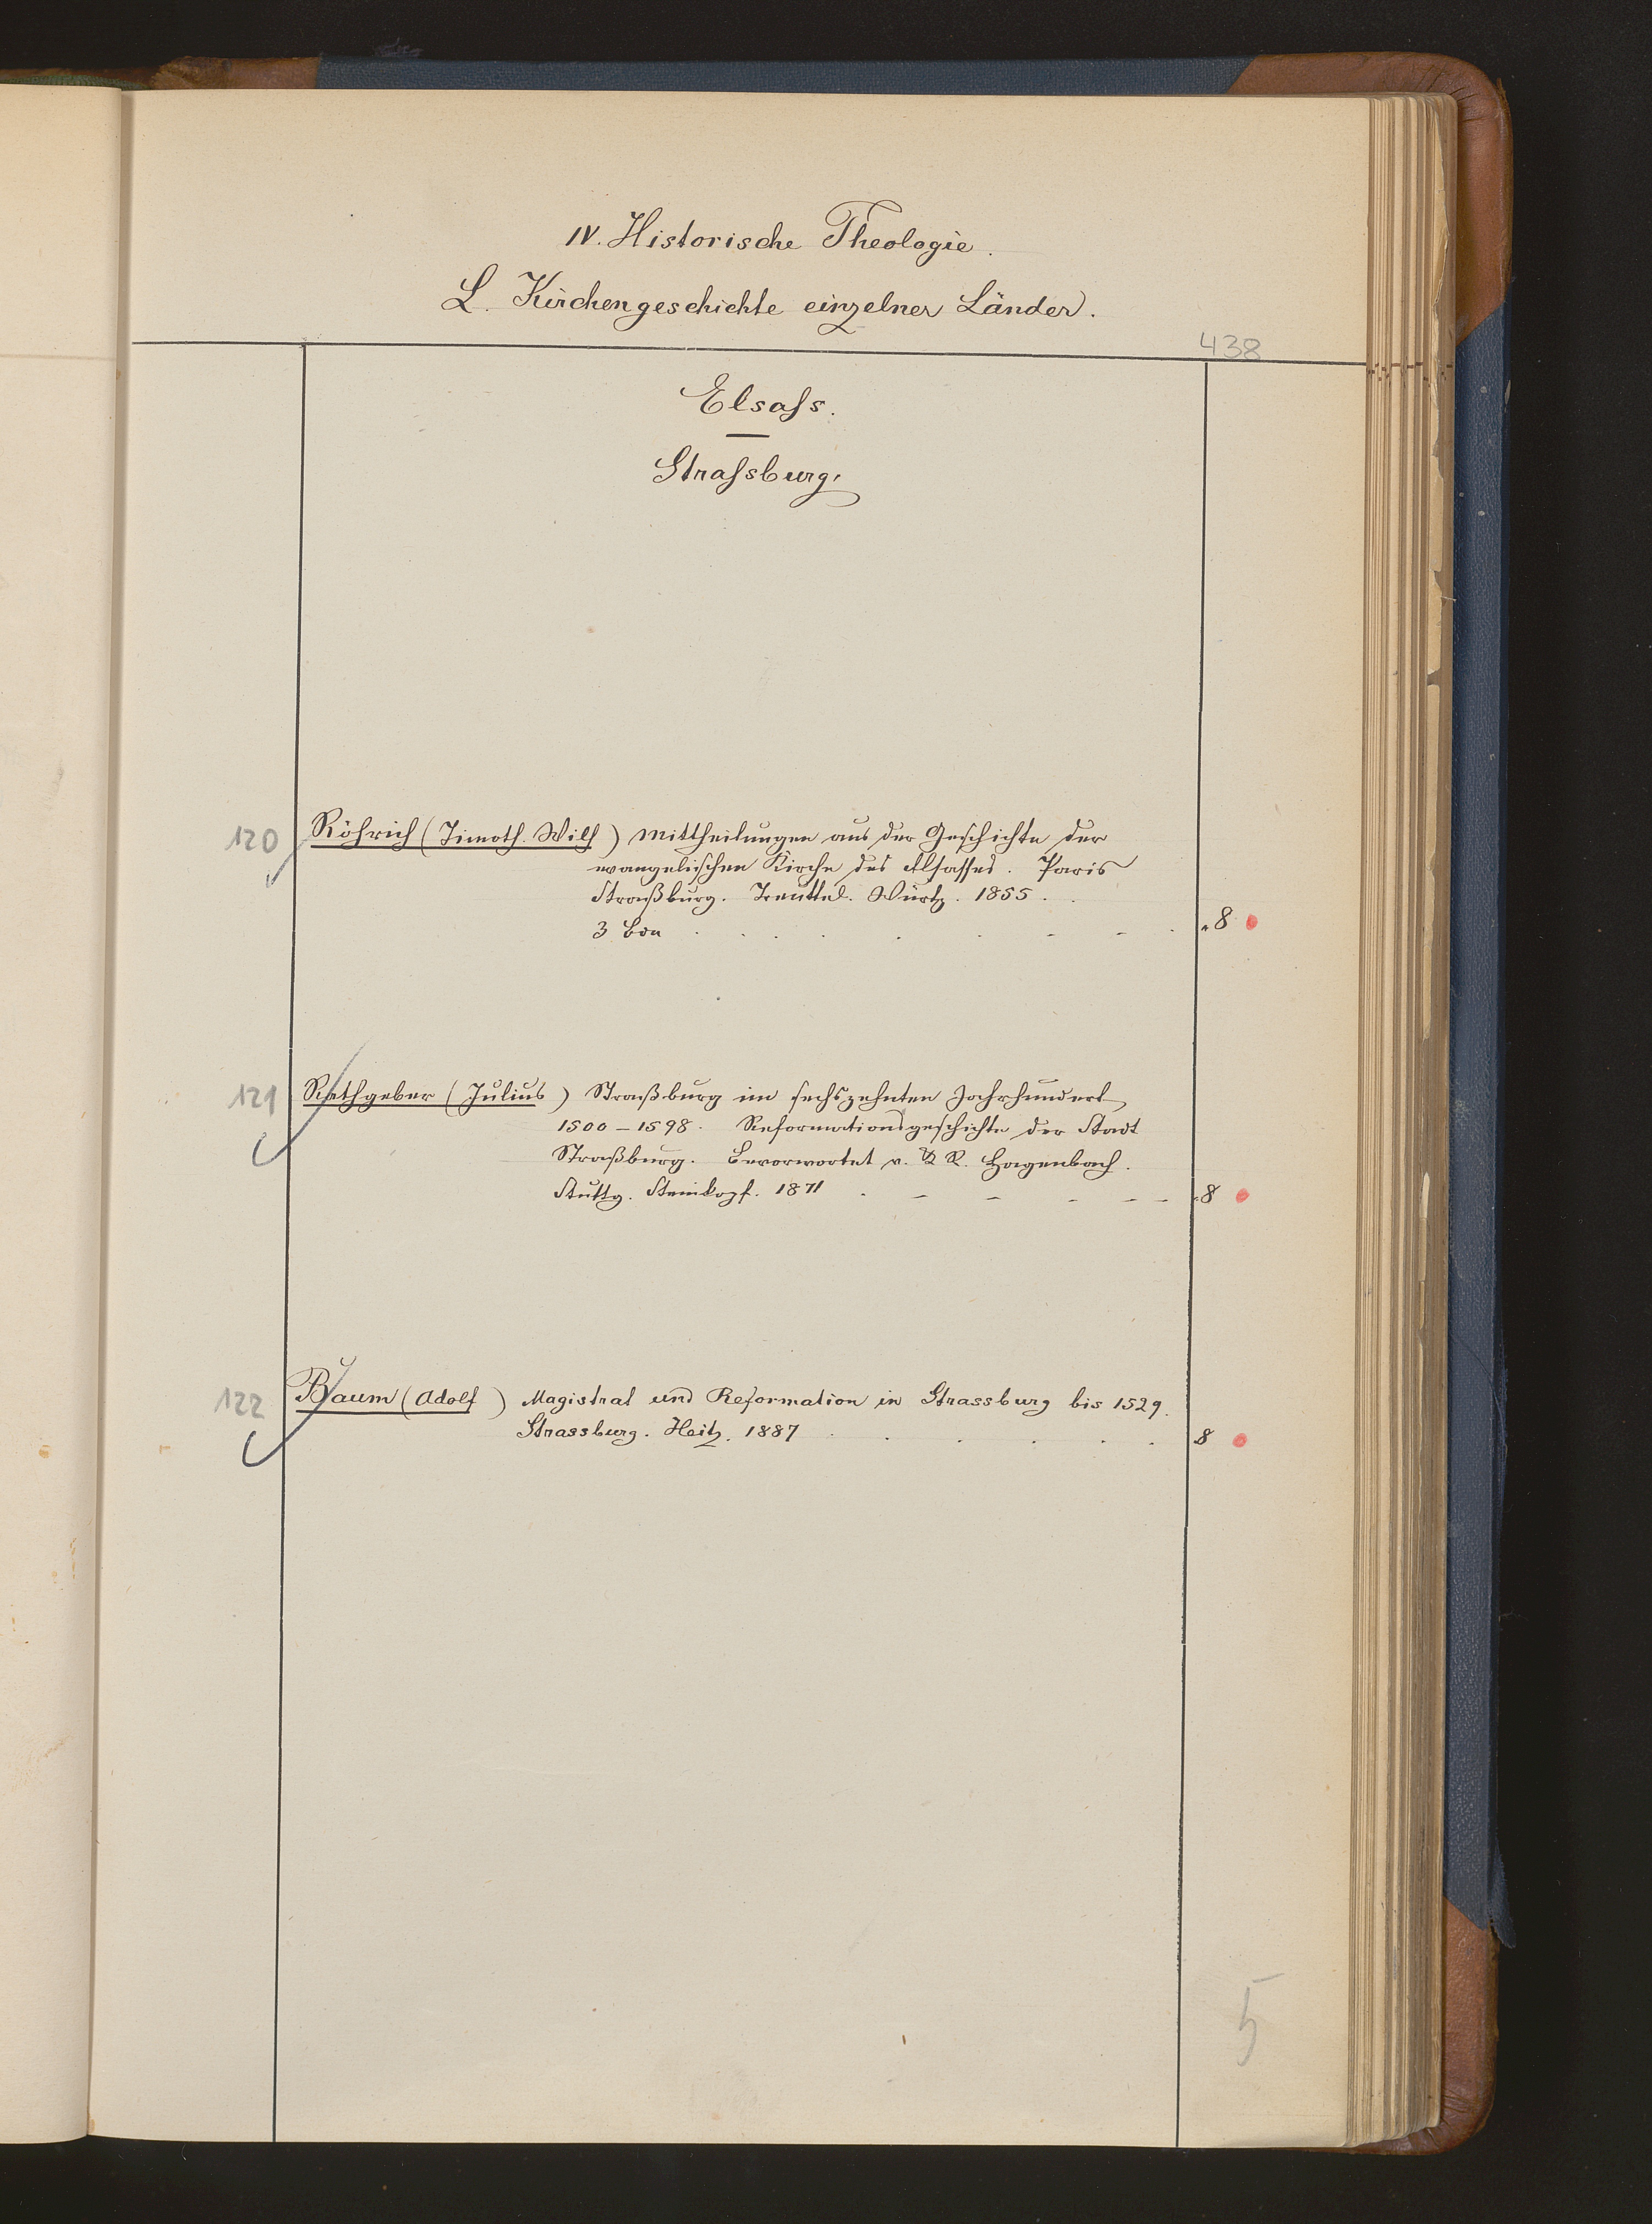 IV. Historische Theologie.
L. Kirchengeschichte einzelner Länder.
438
Elsaſs.
Straſsburg.
120 Röhrich (Timoth. Wilh) Mittheilungen aus der Geschichte der
evangelischen Kirche des Elsasses. Paris
Straßburg. Treuttel. Würtz. 1855.
3 Bde 8
121 Rathgeber (Julius) Straßburg im sechszehnten Jahrhundert
1500-1598. Reformationsgeschichte der Stadt
Straßburg. Bevorwortet v. R. Hagenbach.
Stuttg. Steinkopf. 1871 8
122 Baum (Adolf) Magistrat und Reformation in Strassburg bis 1529.
Strassburg. Heitz. 1887 8
5